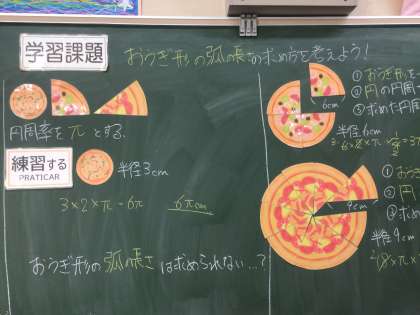 学習課題
おうぎ形の弧の長さの求め方を考えよう!
円周率を π とする.
練習する
PRATICAR
半径3cm
3×2×π=6π
6πcm
おうぎ形の弧の長さは求められない…?
6cm
①おうぎ形を
②円の円周
③求めた円周
半径6cm
9cm
①おう
②円
③求め
半径9cm